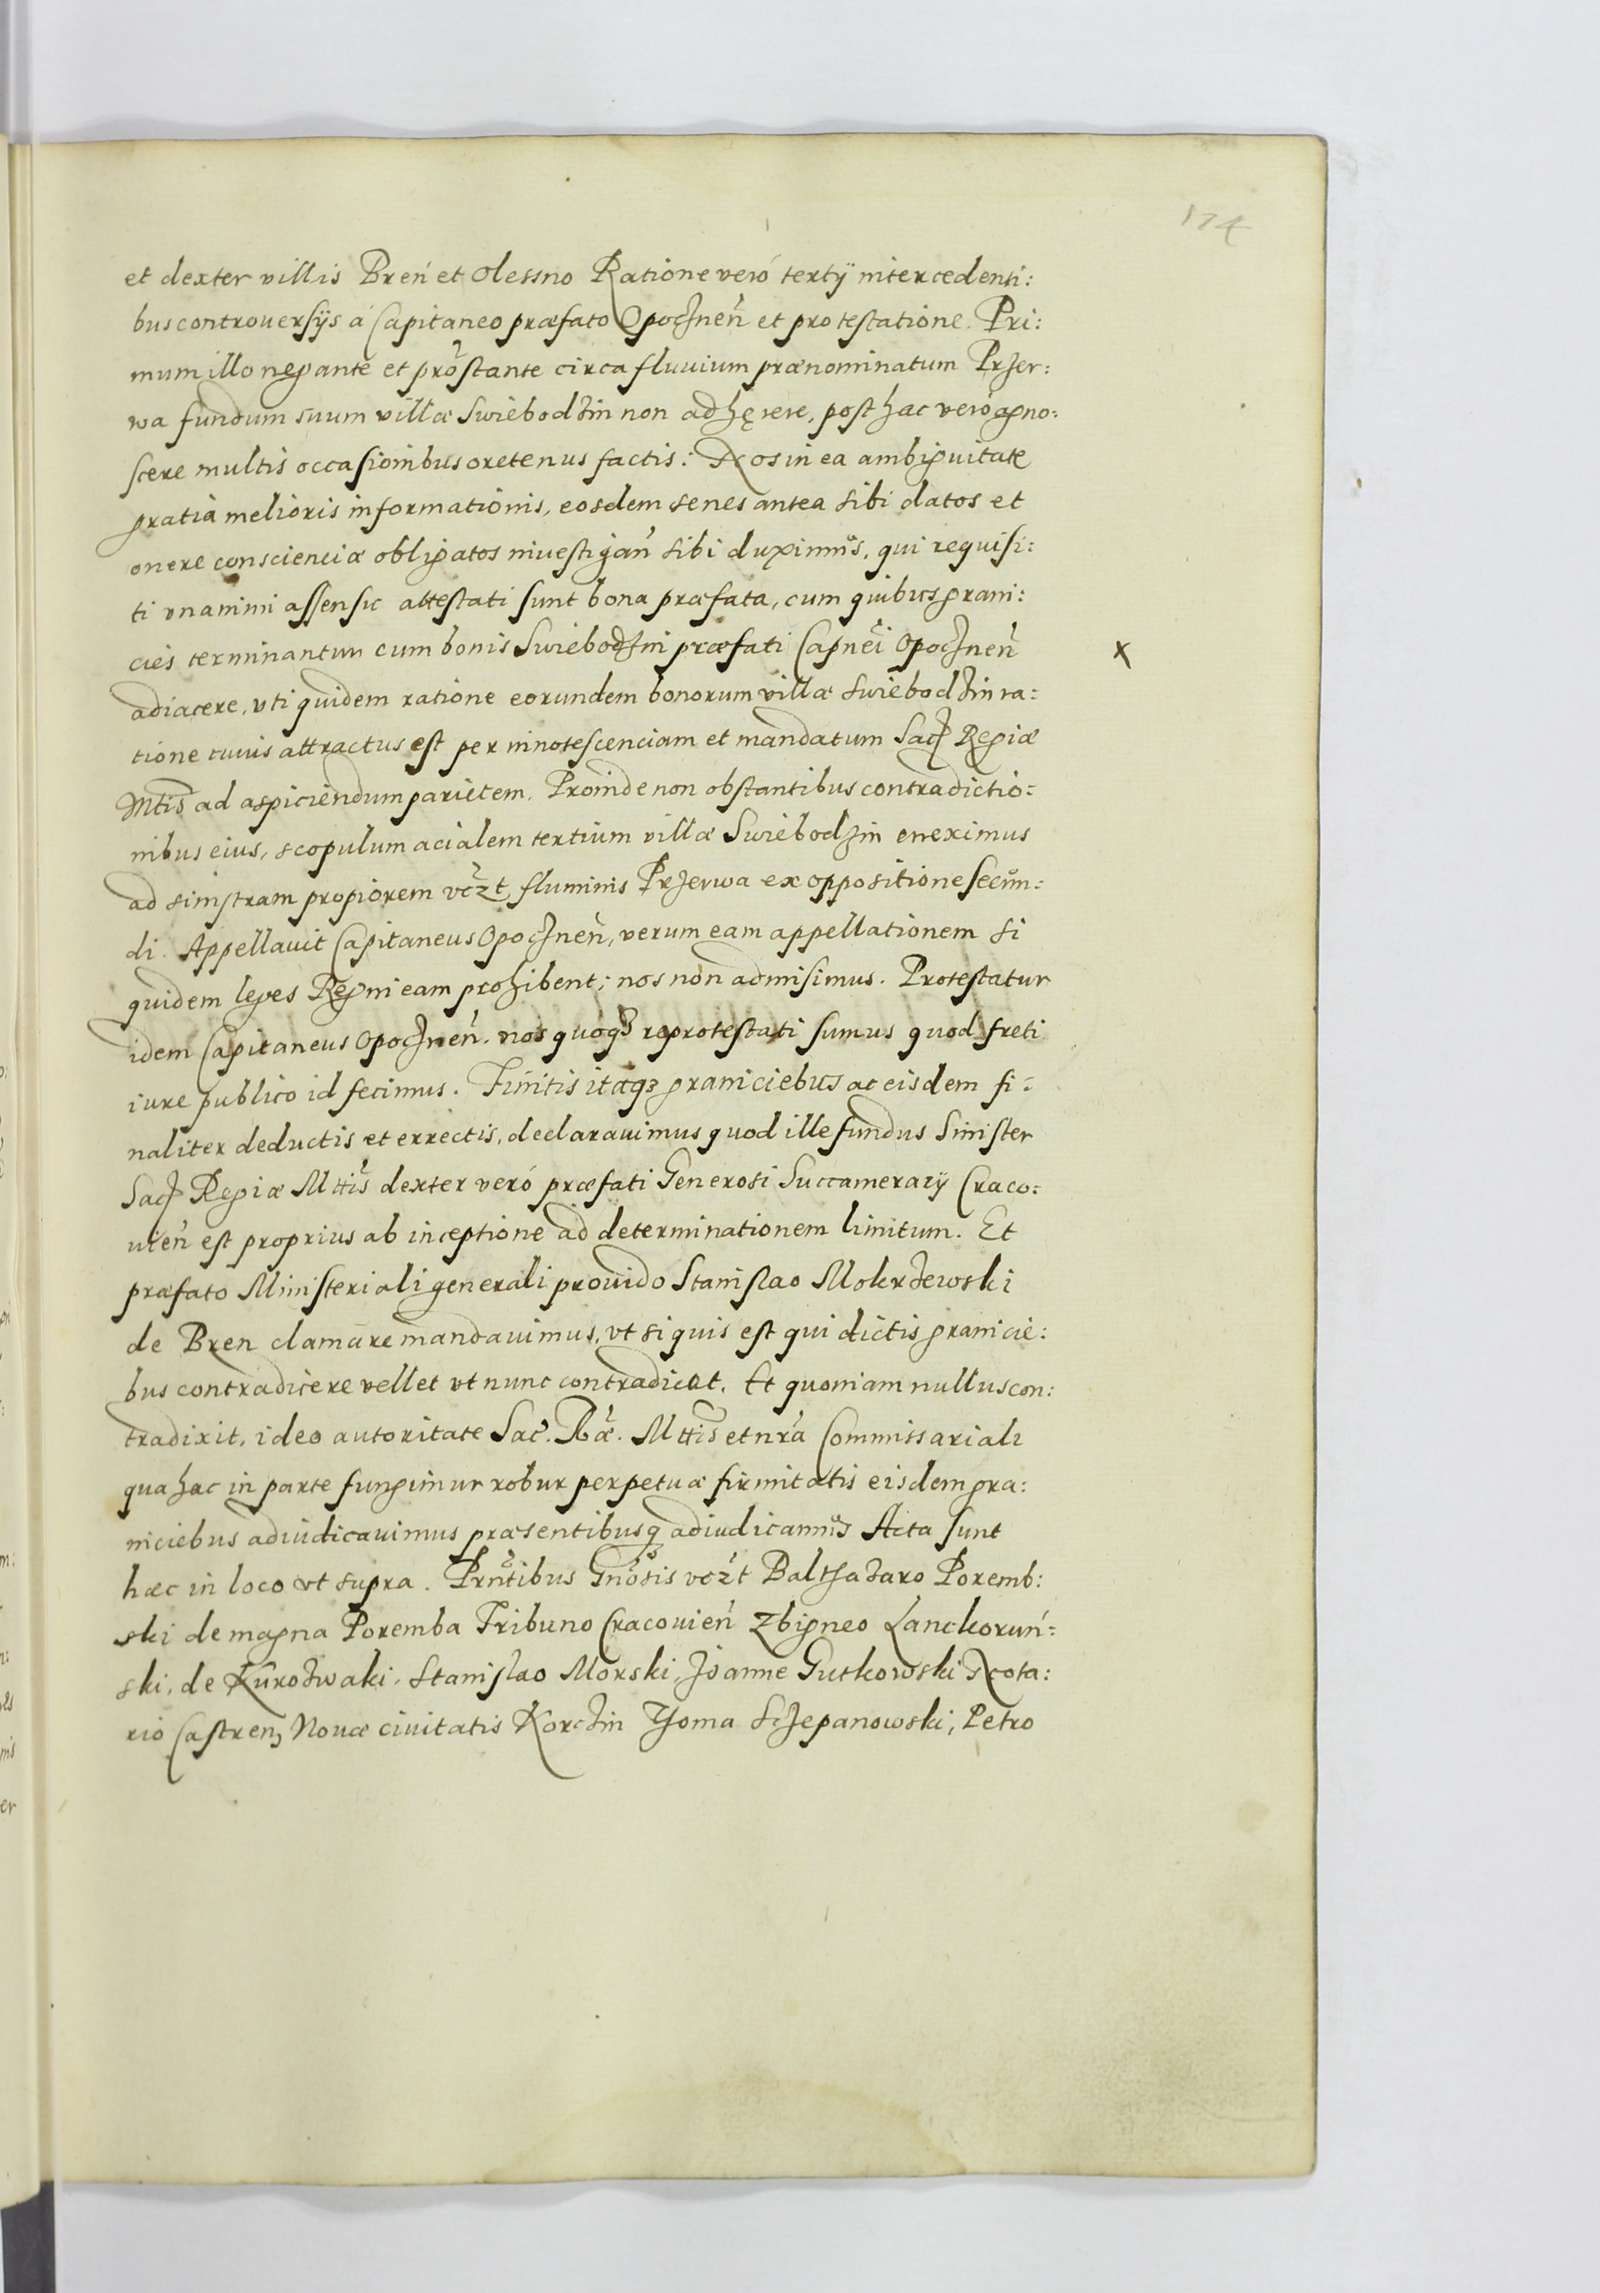 174
et dexter villis Breń et Olessno Ratione veró tertÿ intercedenti:
bus controuersÿs á Capitaneo præfato Opoczneń et protestatione. Pri:
mum illo negante et prostante circa fluuium prænominatum Przer:
wa fundum suum villæ Swiebodzin non adhęrere, post hac veró agno:
scere multis occasionibus oretenus factis: Nos in ea ambiguitate
gratia melioris informationis, eosdem senes antea sibi datos et
onere conscienciæ obligatos inuestigań sibi duximus, qui requisi:
ti vnanimi assensu attestati sunt bona præfata, cum quibus grani:
cies terminantur cum bonis Swiebodzin præfati Capnei Opoczneń
adiacere, vti quidem ratione eorundem bonorum villæ Swiebodzin ra:
tione cuius attractus est per innotescenciam et mandatum Sacr Regiæ
Mtis ad aspiciendum parietem. Proinde non obstantibus contradictio:
nibus eius, scopulum acialem tertium villæ Swiebodzin ereximus
ad sinistram propiorem vczt fluminis Przerwa ex oppositione secun:
di. Appellauit Capitaneus Opoczneń, verum eam appellationem si
quidem leges Regni eam prohibent; nos non admisimus. Protestatur
idem Capitaneus Opoczneń. nos quoqz reprotestati sumus quod freti
iure publico id fecimus. Finitis itaqz graniciebus ac eisdem fi:
naliter deductis et errectis, declarauimus quod ille fundus Sinister
Sacr Regiæ Mttis dexter veró præfati Generosi Succamerarÿ Craco:
uień est proprius ab inceptione ad determinationem limitum. Et
præfato Ministeriali generali prouido Stanislao Mokrzewski
de Bren clamare mandauimus, vt si quis est qui dictis granicie:
bus contradicere vellet vt nunc contradicat. Et quoniam nullus con:
tradixit, ideo autoritate Sac. Ræ. Mttis et nra Commissariali
qua hac in parte fungimur robur perpetuæ firmitatis eisdem gra:
niciebus adiudicauimus præsentibusqz adiudicamus Acta sunt
hæc in loco vt supra. Prntibus Gnosis vczt Balthazaro Poremb:
ski de magna Poremba Tribuno Cracouień Zbigneo Lanckoruń:
ski, de Kurozwaki, Stanislao Morski, Joanne Gutkowski Nota:
rio Castreń, Nouæ ciuitatis Korczin Thoma Sczepanowski, Petro
x